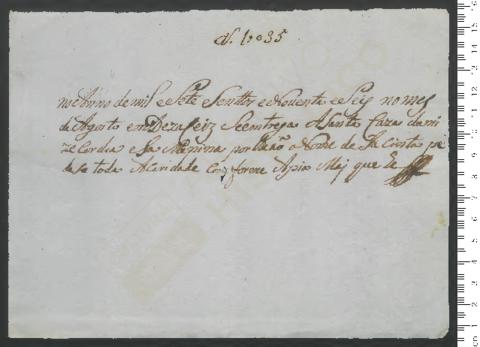 N. 1035
no Anno de mil e Sete Sentos e Noventa e Seis no mes
de Agosto em Dezaseiz Se entrega A Santa Caza da mi
ze Cordia e Sa Menina por Nome de Ja
de Se toda A Caridade Conforme A que he